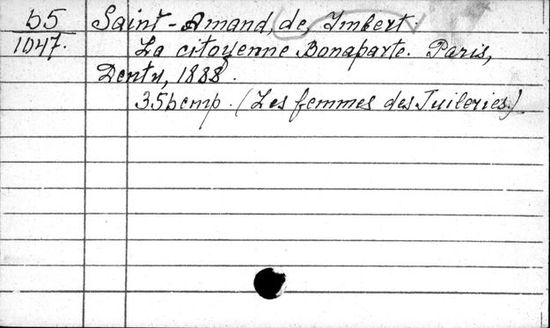 b5 Saint-Amand, de, Imbert
1047. La citoyenne Bonaparte. Paris,
Dentu, 1888.
355 стр. (Les femmes des Tuileries.)